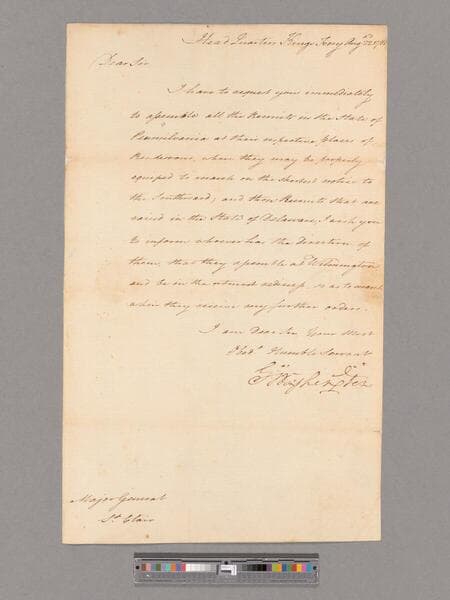 Head Quarters Kings Ferry Aug.t 22.d 1781
Dear Sir
I have to request you immediately
to assemble all the Recruits in the State of
Pennsilvania at their respective places of
Rendezvous, where they may be properly
equiped to march on the shortest notice to
the Southward; and those Recruits that are
raised in the State of Delaware, I wish you
to inform whoever has the direction of
them, that they assemble at Wilmington
and be in the utmost rediness so as to march
when they receive my further orders.
I am Dear Sir Your Most
Obed.t Humble Servant
G.o Washington
Major General
S.t Clair